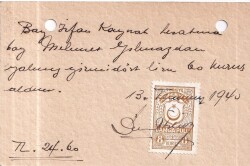 Bay İrfan Kaynak hesabına
bay Mehmet Yılmazdan
yalnız yirmidört lira 60 kuruş
aldım.
13. 1940
Tl. 24.60